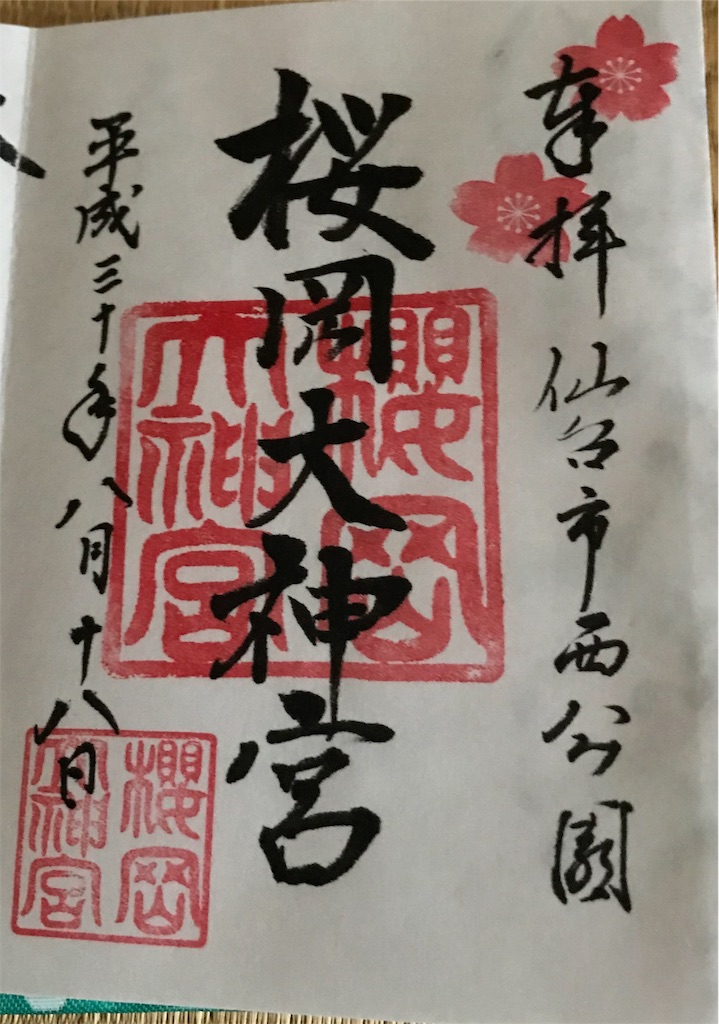 奉拝 仙台市西公園
桜岡大神宮
櫻岡大神宮
平成三十年八月十八日
櫻岡大神宮